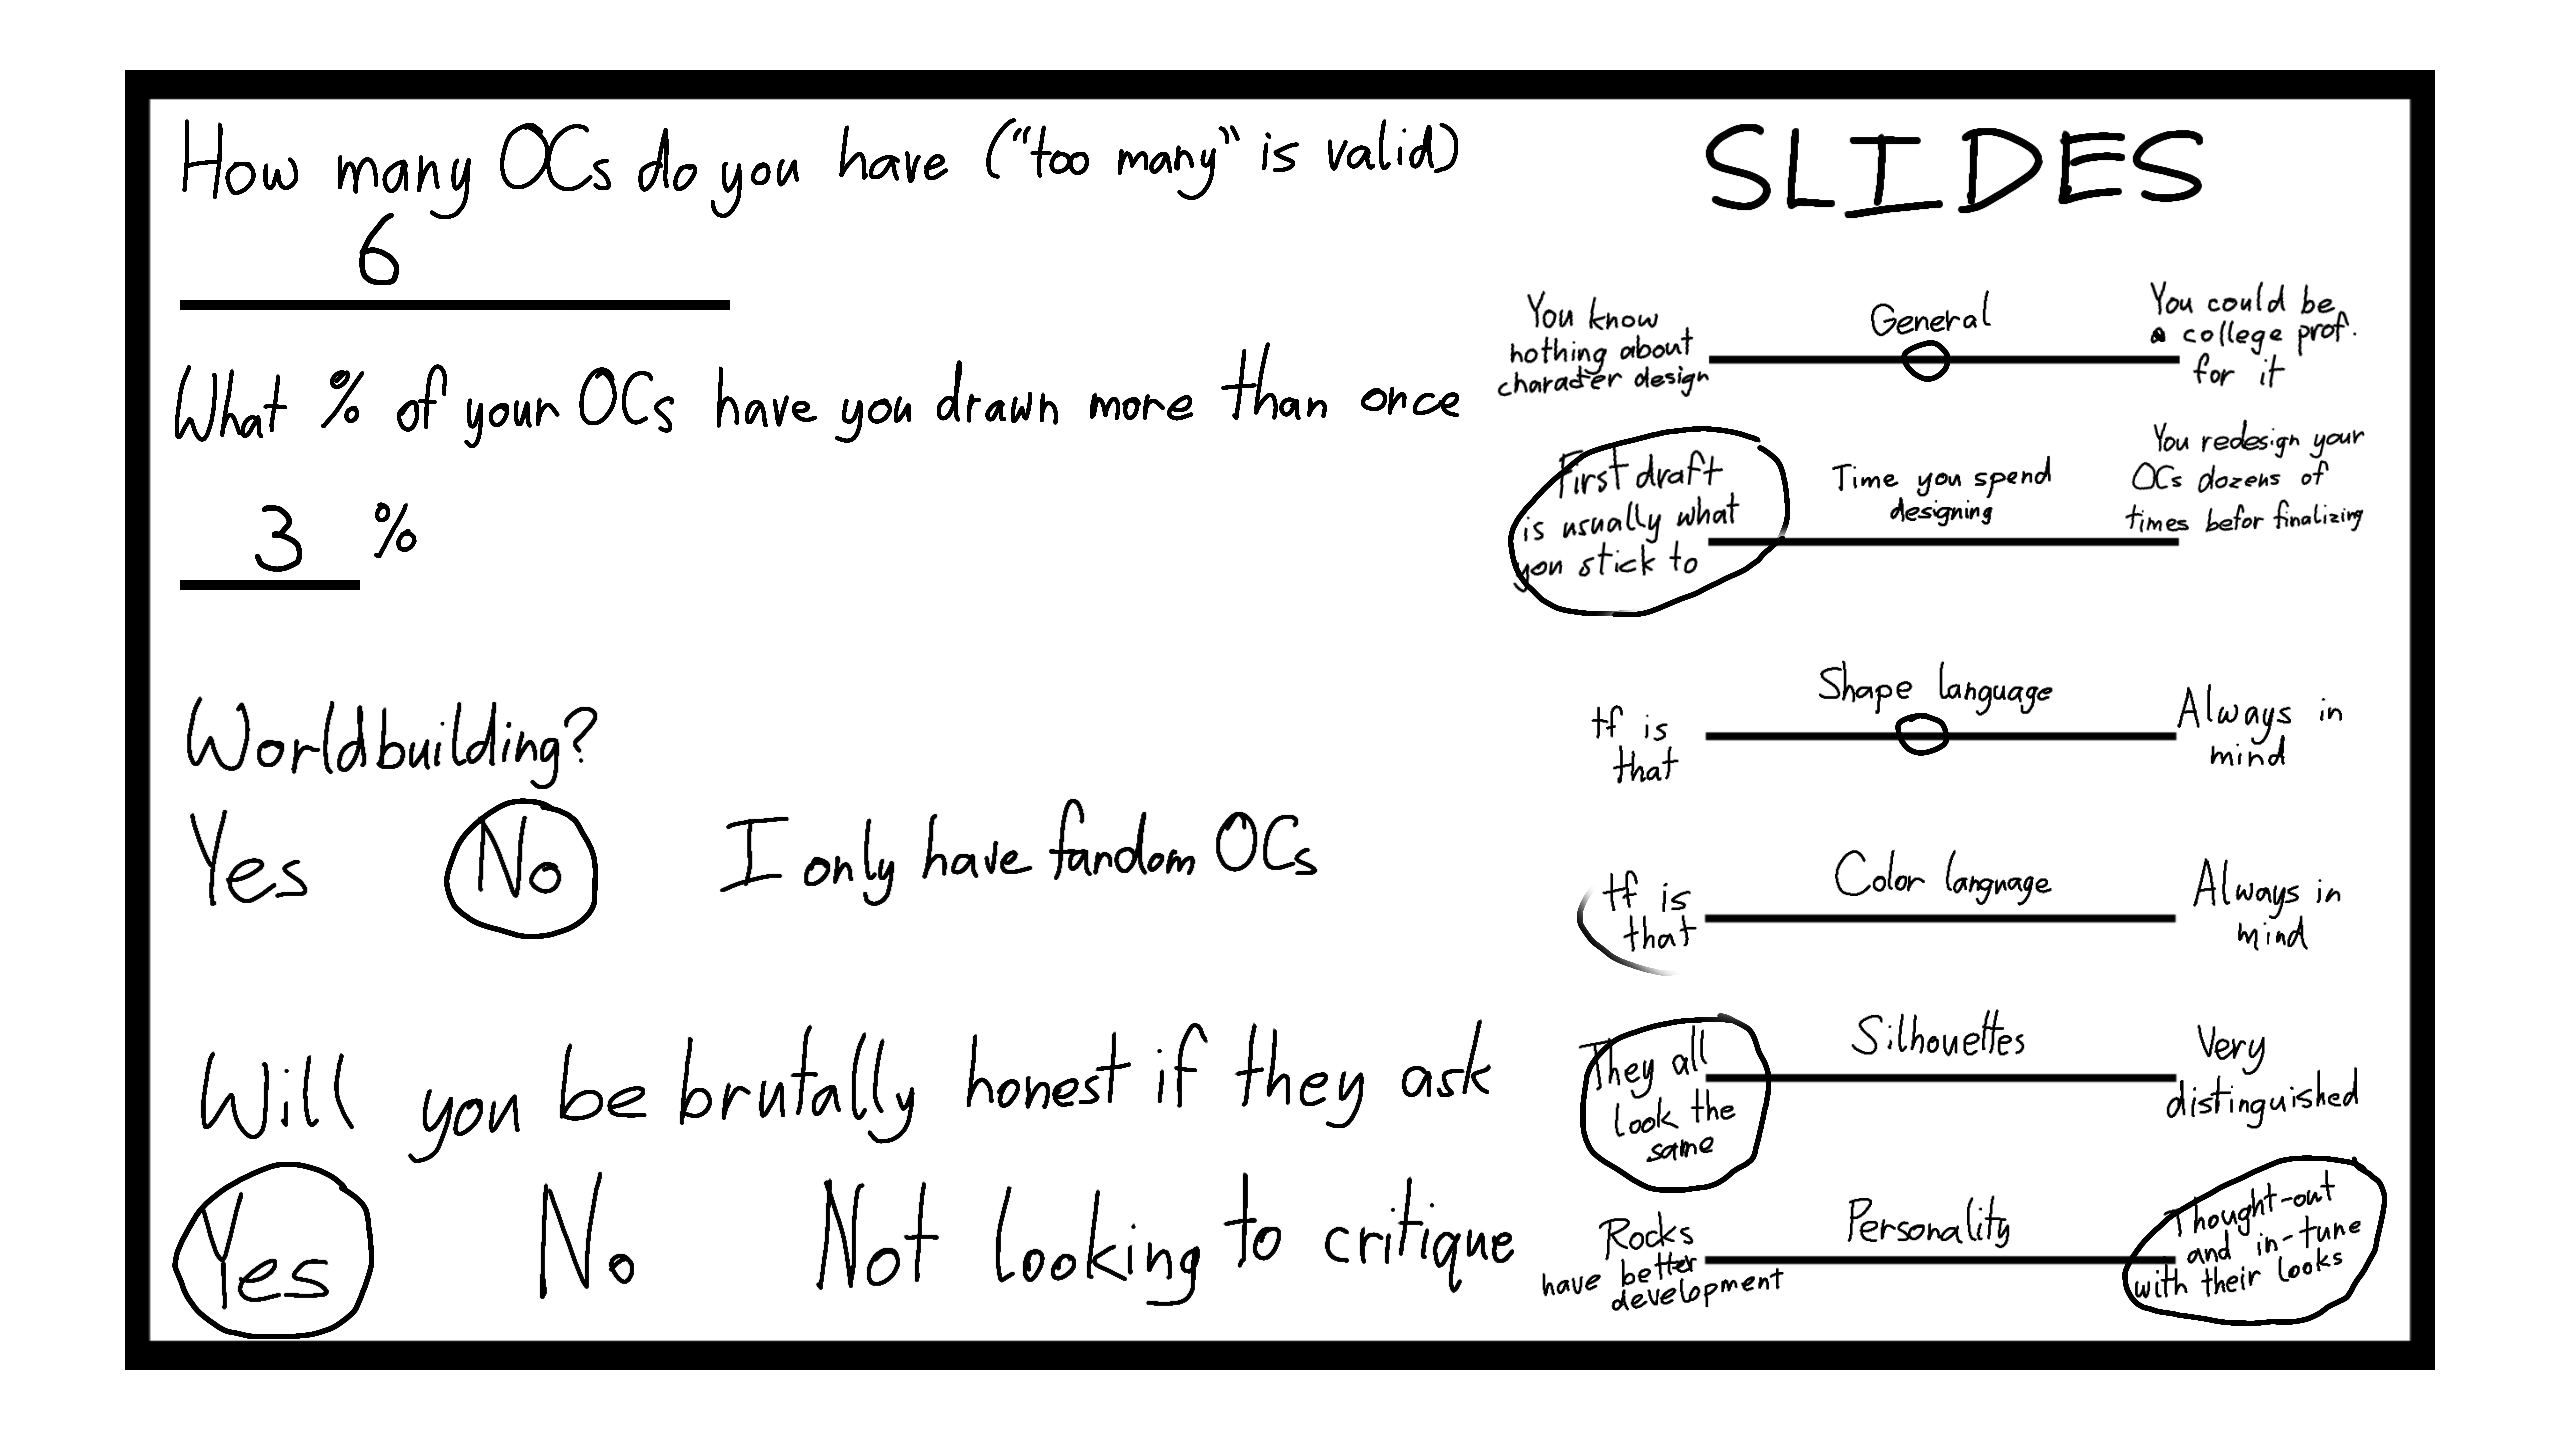 How many OCs do you have ("too many" is valid)
6
What % of your OCs have you drawn more than once
3 %
Worldbuilding?
Yes No I only have fandom OCs
Will you be brutally honest if they ask
Yes No Not looking to critique
SLIDES
General
You know
nothing about
character design
You could be
a college prof.
for it
Time you spend
designing
First draft
is usually what
you stick to
You redesign your
OCs dozens of
times befor finalizing
Shape language
tf is
that
Always in
mind
Color language
tf is
that
Always in
mind
Silhouettes
They all
look the
same
Very
distinguished
Personality
Rocks
have better
development
Thought-out
and in-tune
with their looks